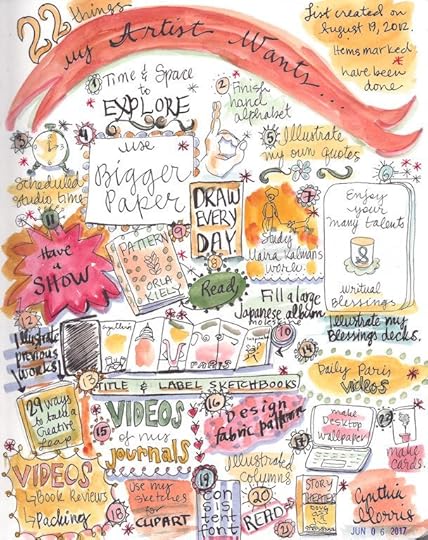 22 things
my Artist Wants...
List created on
August 19, 2012.
Items marked
have been
done
1 Time & Space
to
EXPLORE
2 Finish
hand
alphabet
3
Scheduled
studio time
4
use
Bigger
Paper
5 Illustrate
my own quotes
6
Enjoy
your
many talents
8
virtual
Blessings
Illustrate my
Blessings decks.
DRAW
EVERY
DAY
8
7
Study
Maira Kalman's
work.
11
Have
a
SHOW
9
PATTERN
ORLA
KIELY
Read
Fill a large
Japanese album
moleskine
10
12
Illustrate
previous
works
13
TITLE & LABEL SKETCHBOOKS
14
Daily Paris
videos
29 ways
to take a
Creative
leap
15
VIDEOS
of my
journals
16
Design
fabric pattern
17
make
DESKTOP
wallpaper
make
CARDS.
VIDEOS
Book Reviews
Packing
18
Use my
sketches
for
CLIPART
19
Consistent
font
Illustrated
Columns
20
READ
21
STORY
THEATER
Cynthia
Morris
JUN 06 2017